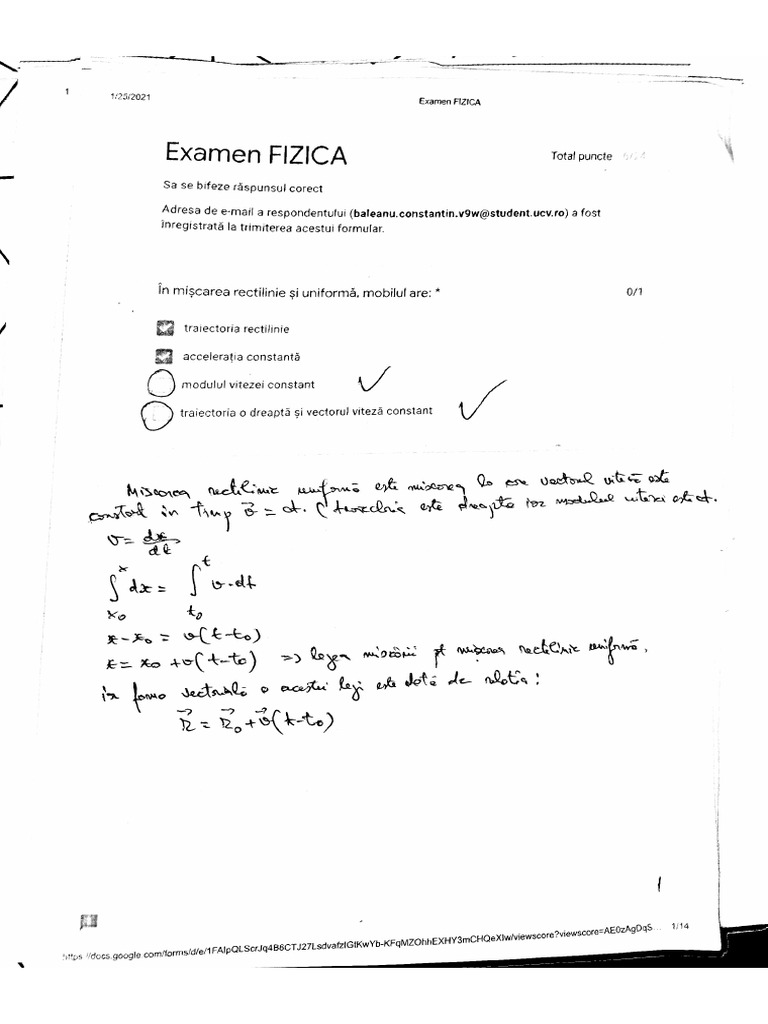 1
1/25/2021
Examen FIZICA
Examen FIZICA
Total puncte
Sa se bifeze răspunsul corect
Adresa de e-mail a respondentului (baleanu.constantin.v9w@student.ucv.ro) a fost
înregistrată la trimiterea acestui formular.
În mișcarea rectilinie și uniformă, mobilul are: *
0/1
traiectoria rectilinie
accelerația constantă
modulul vitezei constant ✓
traiectoria o dreaptă și vectorul viteză constant ✓
Miscarea rectilinie uniformă este miscarea la care vectorul viteză este
constant în timp v⃗ = ct. ( este dreapta iar modulul vitezei este ct.
v = dx/dt
∫ₓ₀ˣ dx = ∫ₜ₀ᵗ v·dt
x-x₀ = v(t-t₀)
x = x₀ + v(t-t₀) => legea miscării pt miscarea rectilinie uniformă,
forma vectorială a acestei legi este dată de relatia:
R⃗ = R⃗₀ + v⃗(t-t₀)
1
1/14